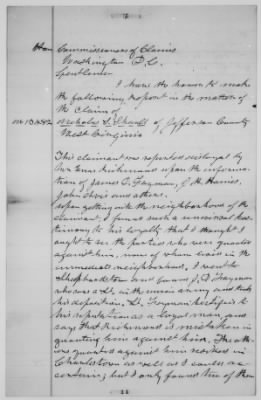 Hon Commissioners of Claims
Washington D.C.
Gentlemen
I have the honor to make
the following report in the matter of
the claim of
No 13852 Nicholas S. of Jefferson County
West Virginia
This claimant was reported disloyal by
upon the informa-
tion of James C. Frazman, J. H. Haines,
John and others.
upon getting into the neighborhood of the
claimant, I found such a universal tes-
timony to his loyalty that I thought I
ought to see the parties who were quoted
against him, none of whom lived in the
immediate neighborhood, I went to
Shepherdstown and found J. C. Frazman
who was a Lt. in the union army and took
his deposition. Lt. Frazman testifies to
his reputation as a loyal man, and
says that Richmond is mistaken in
quoting him against him. The oth-
ers quoted against him resided in
Charlestown as well as I could as-
certain; but I only found two of them